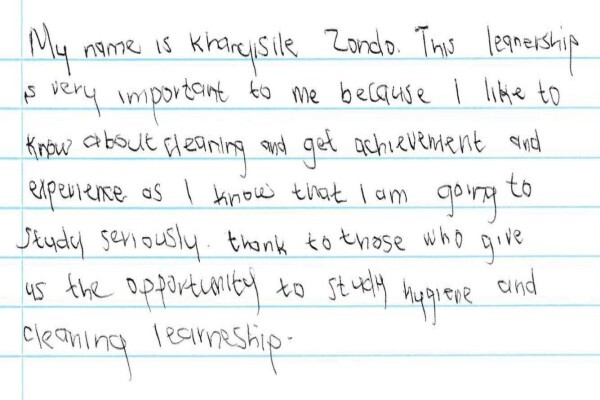 My name is Khanyisile Zondo. This leanership
is very important to me because I like to
know about cleaning and get achievement and
experience as I know that I am going to
study seriously. thank to those who give
us the opportunity to study hygiene and
cleaning learneship.